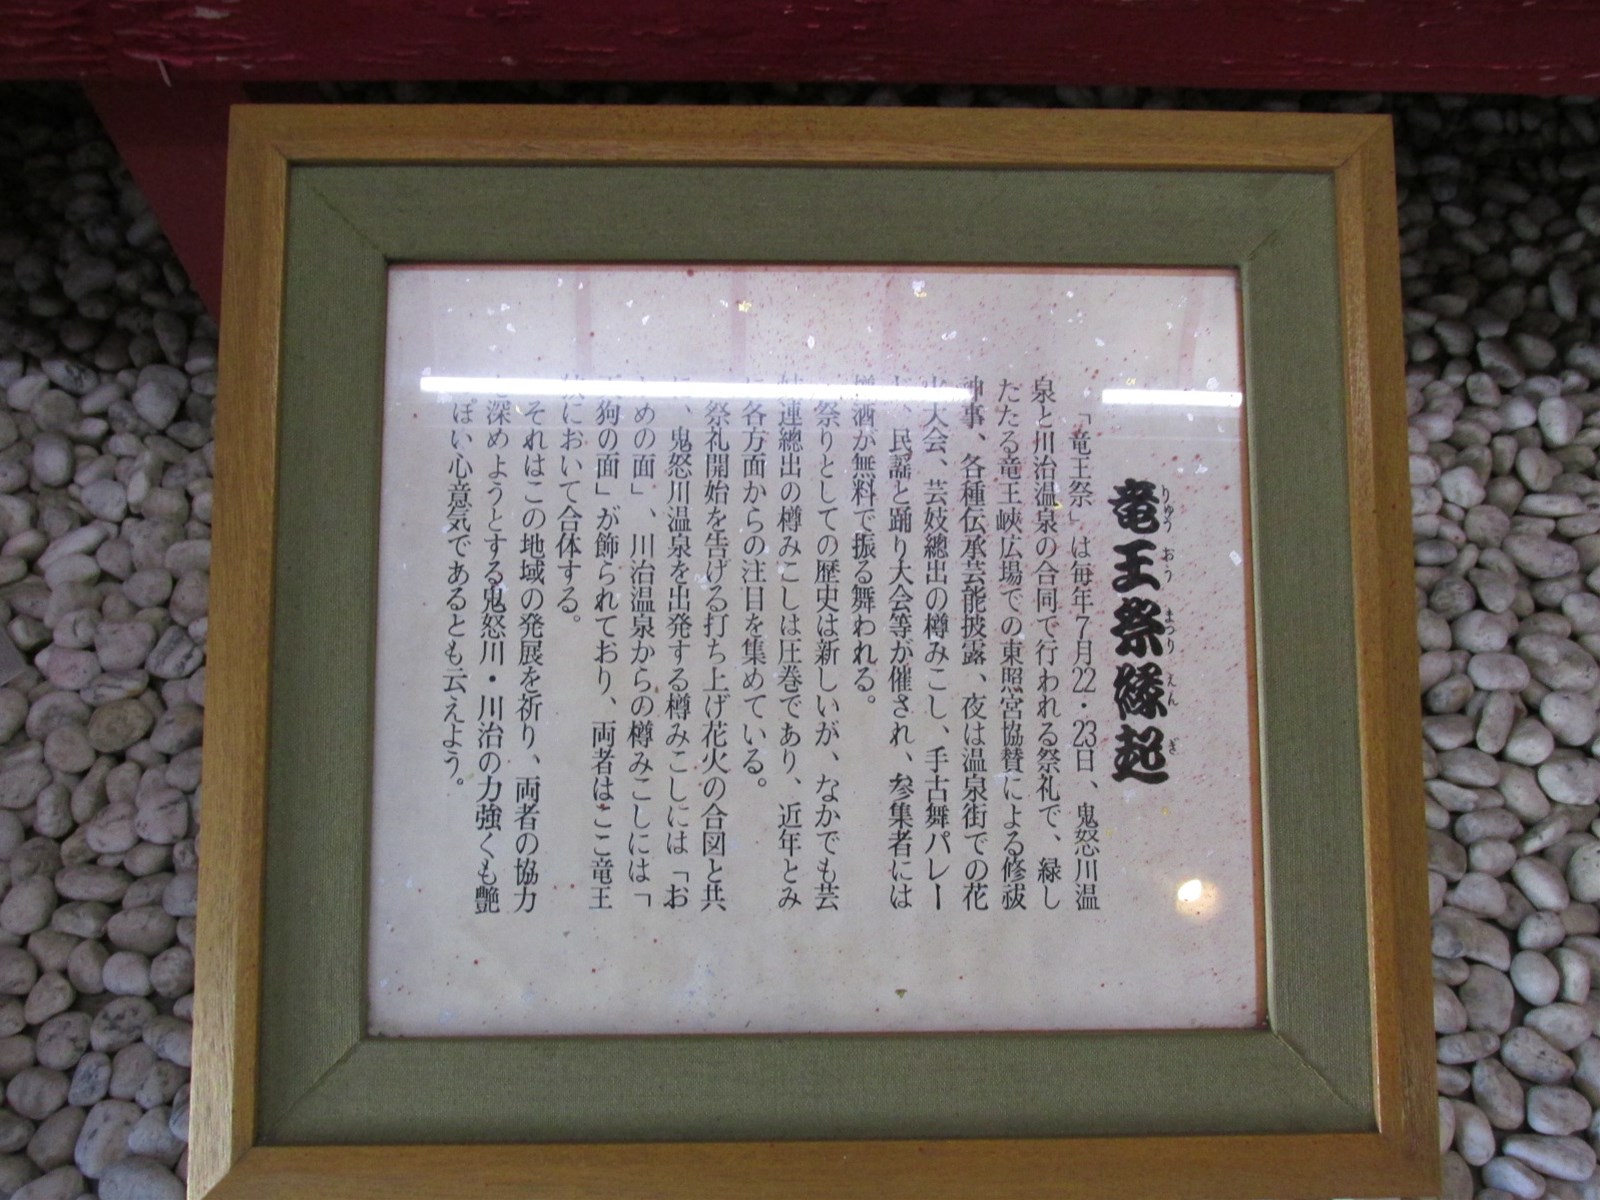 竜王祭縁起
りゅう おう まつり えん ぎ
「竜王祭」は毎年7月22・23日、鬼怒川温
泉と川治温泉の合同で行われる祭礼で、緑し
たたる竜王峡広場での東照宮協賛による修祓
神事、各種伝承芸能披露、夜は温泉街での花
火大会、芸妓總出の樽みこし、手古舞パレー
、民謡と踊り大会等が催され、参集者には
樽酒が無料で振る舞われる。
祭りとしての歴史は新しいが、なかでも芸
妓連總出の樽みこしは圧巻であり、近年とみ
に各方面からの注目を集めている。
祭礼開始を告げる打ち上げ花火の合図と共
に、鬼怒川温泉を出発する樽みこしには「お
かめの面」、川治温泉からの樽みこしには「
天狗の面」が飾られており、両者はここ竜王
峡において合体する。
それはこの地域の発展を祈り、両者の協力
を深めようとする鬼怒川・川治の力強くも艶
っぽい心意気であるとも云えよう。